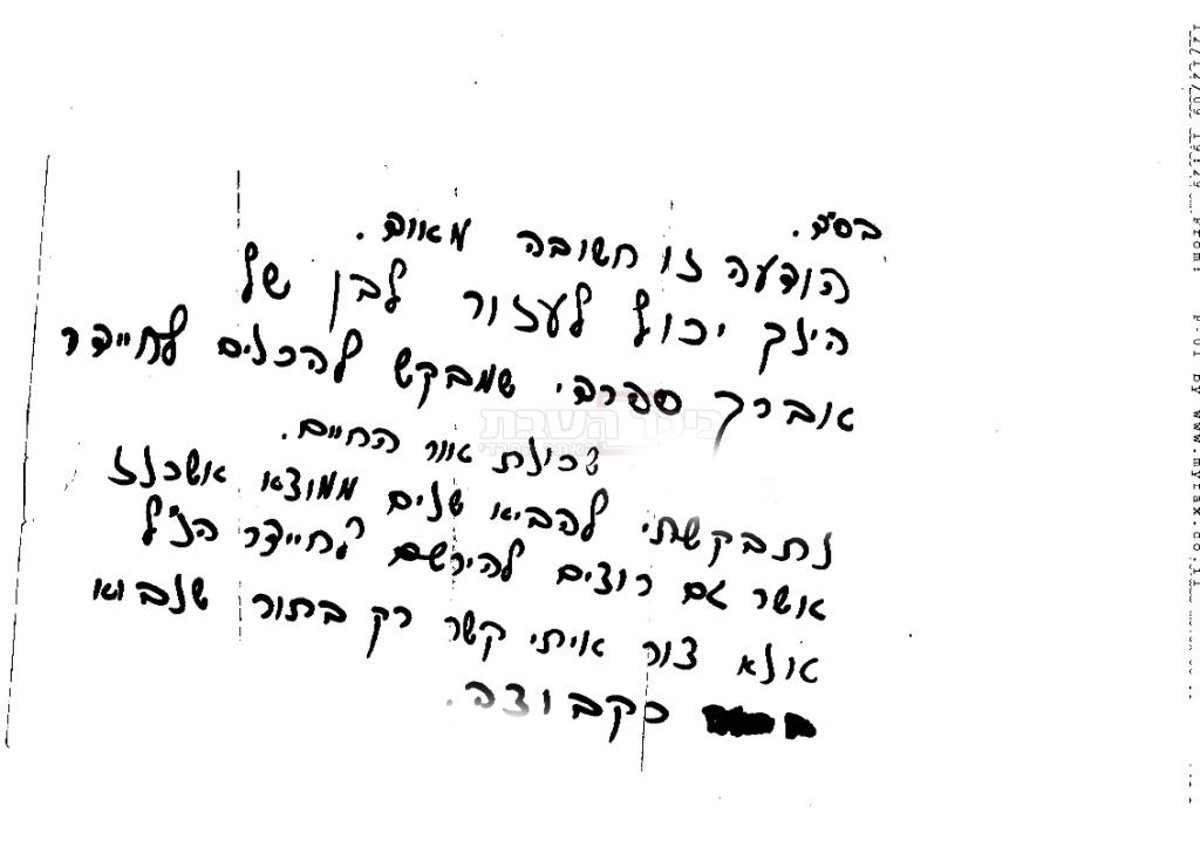 בס"ד.
הודעה זו חשובה מאוד.
הינך יכול לעזור לבן של
אברך ספרדי שמבקש להכנים לחיידר
שכונת אור החיים.
נתבקשתי להביא שנים ממוצא אשכנז
אשר גם רוצים להירשם לחיידר הנ"ל
אנא צור איתי קשר רק בתור שנבוא
כקבוצה.
כיכר השבת